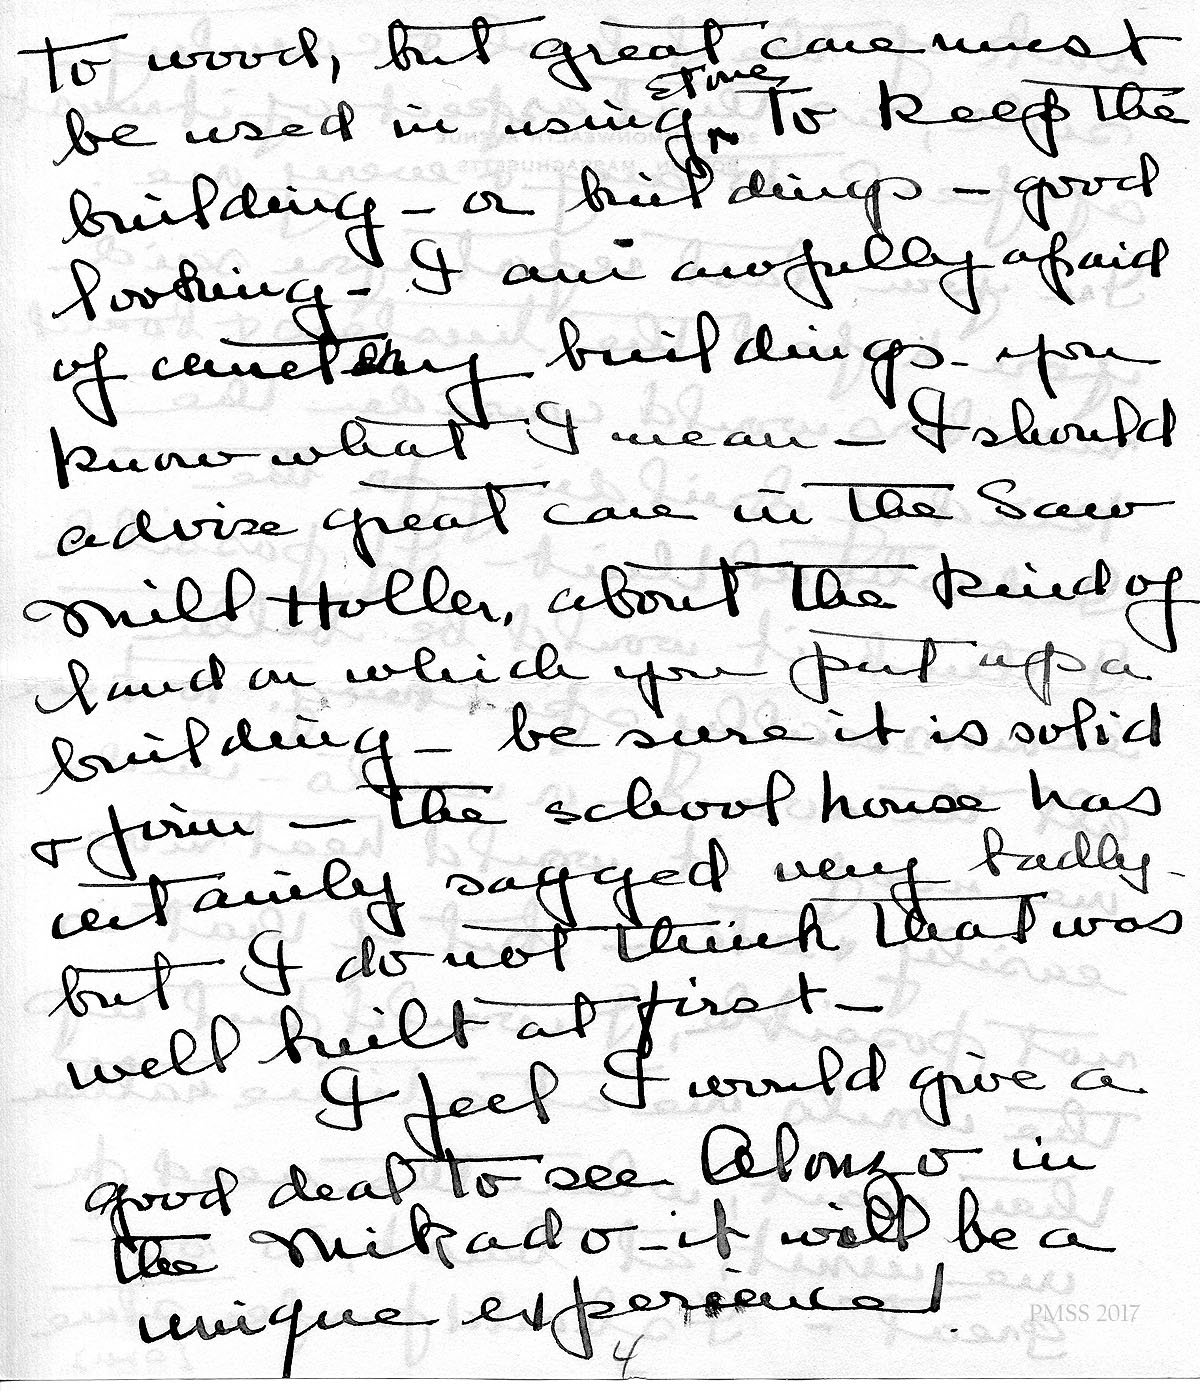 to wood, but great care must
be used in using ^stone to keep the
building - or buildings - good
looking - I am awfully afraid
of cemetery buildings - you
know what I mean - I should
advise great care in the Saw
Mill Holler, about the kind of
land on which you put up a
building - be sure it is solid
& firm - the school house has
certainly sagged very badly -
but I do not think that was
well built at first -
I feel I would give a
good deal to see Alonzo in
the Mikado - it will be a
unique experience!
4
PMSS 2017